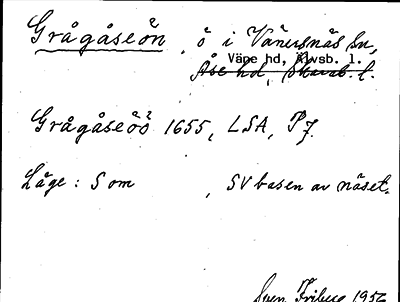 Grågåseön, ö i Vänersnäs sn,
Väne hd, Älvsb. l.
Åse hd, Skarab. l.
Grågåseöö 1655, LSA, P7.
Läge: S om , SV basen av näset.
Sven Friberg 1956